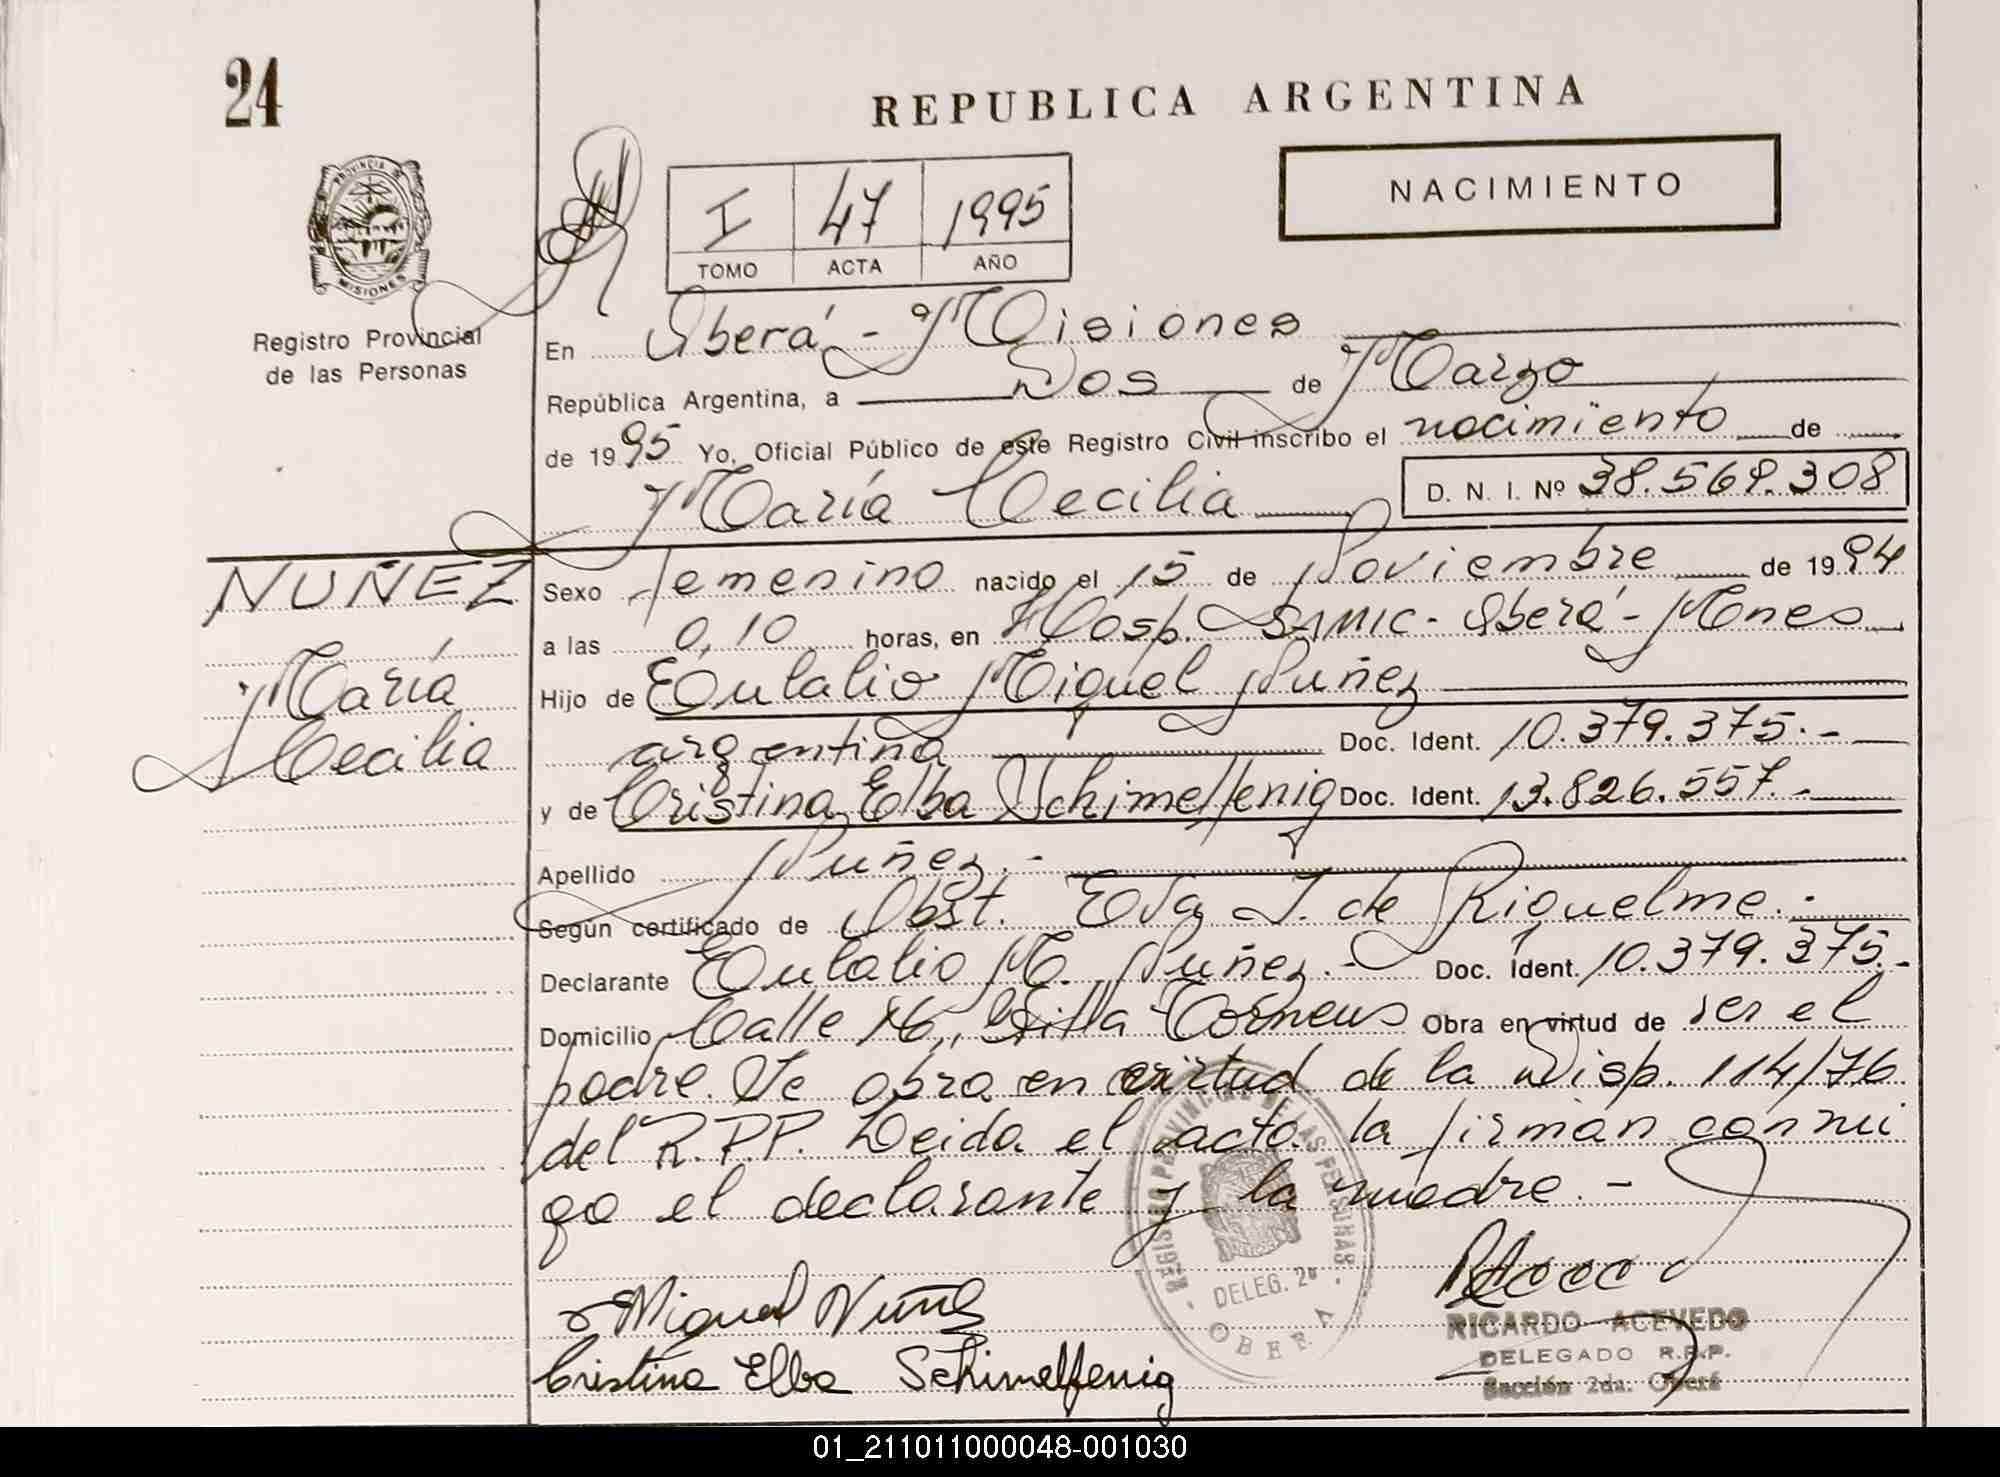 24
REPUBLICA ARGENTINA
PROVINCIA DE
MISIONES
Registro Provincial
de las Personas
I 47 1995
TOMO ACTA AÑO
NACIMIENTO
En Oberá - Misiones
República Argentina, a Dos de Marzo
de 1995 Yo, Oficial Público de este Registro Civil inscribo el nacimiento de
María Cecilia D. N. I. Nº 38.569.308
NUÑEZ
María
Cecilia
Sexo femenino nacido el 15 de Noviembre de 1994
a las 0,10 horas, en Hosp. SAMIC - Oberá - Mnes
Hijo de Eulalio Miguel Nuñez
argentina Doc. Ident. 10.379.375.-
y de Cristina Elba Schimelfenig Doc. Ident. 13.826.557.-
Apellido Nuñez.-
Según certificado de Obst. Eva J. de Riquelme.-
Declarante Eulalio M. Nuñez.- Doc. Ident. 10.379.375.-
Domicilio Calle 16, Villa Torneus Obra en virtud de ser el
padre. Se obra en virtud de la Disp. 114/76
del R.P.P. Leida el acta la firman conmi
go el declarante y la madre.-
Miguel Nuñez
Cristina Elba Schimelfenig
PROVINCIAL DE LAS PERSONAS
DELEG. 2ª
OBERA
RICARDO ACEVEDO
DELEGADO R.P.P.
Sección 2da. Oberá
01_211011000048-001030